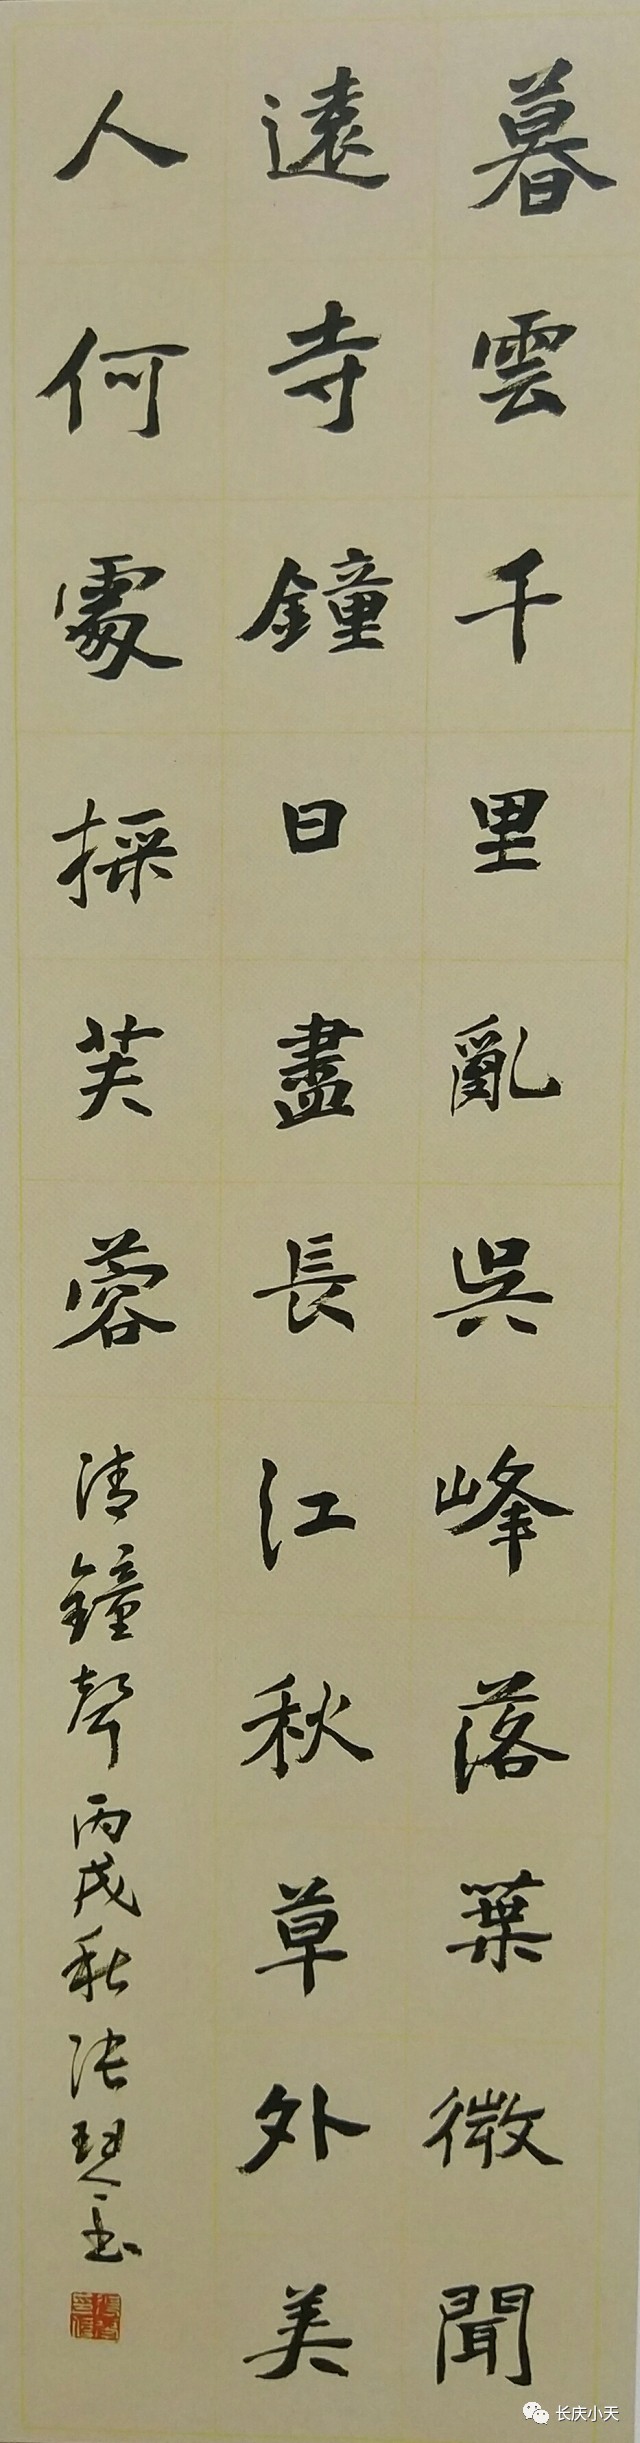 暮雲千里亂吳峰落葉微聞
遠寺鐘日盡長江秋草外美
人何處採芙蓉
清鐘聲丙戌秋張
长庆小天